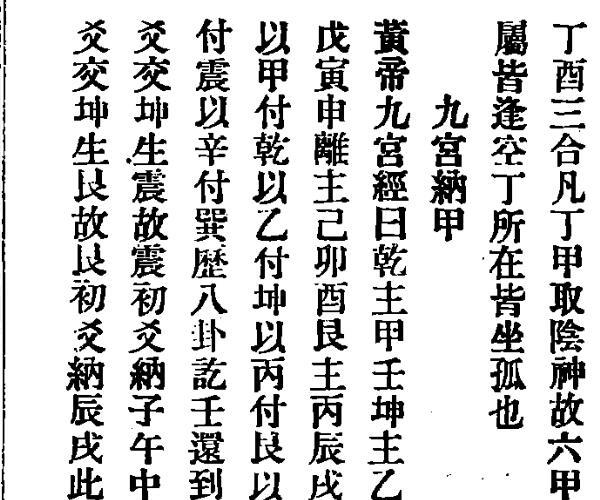 丁酉三合凡丁甲取陰神故六甲
屬皆逢空丁所在皆坐孤也
九宮納甲
黃帝九宮經曰乾主甲壬坤主乙
戊寅申離主己卯酉艮主丙辰戌
以甲付乾以乙付坤以丙付艮以
付震以辛付巽歷八卦訖壬還到
爻交坤生震故震初爻納子午中
爻交坤生艮故艮初爻納辰戌此